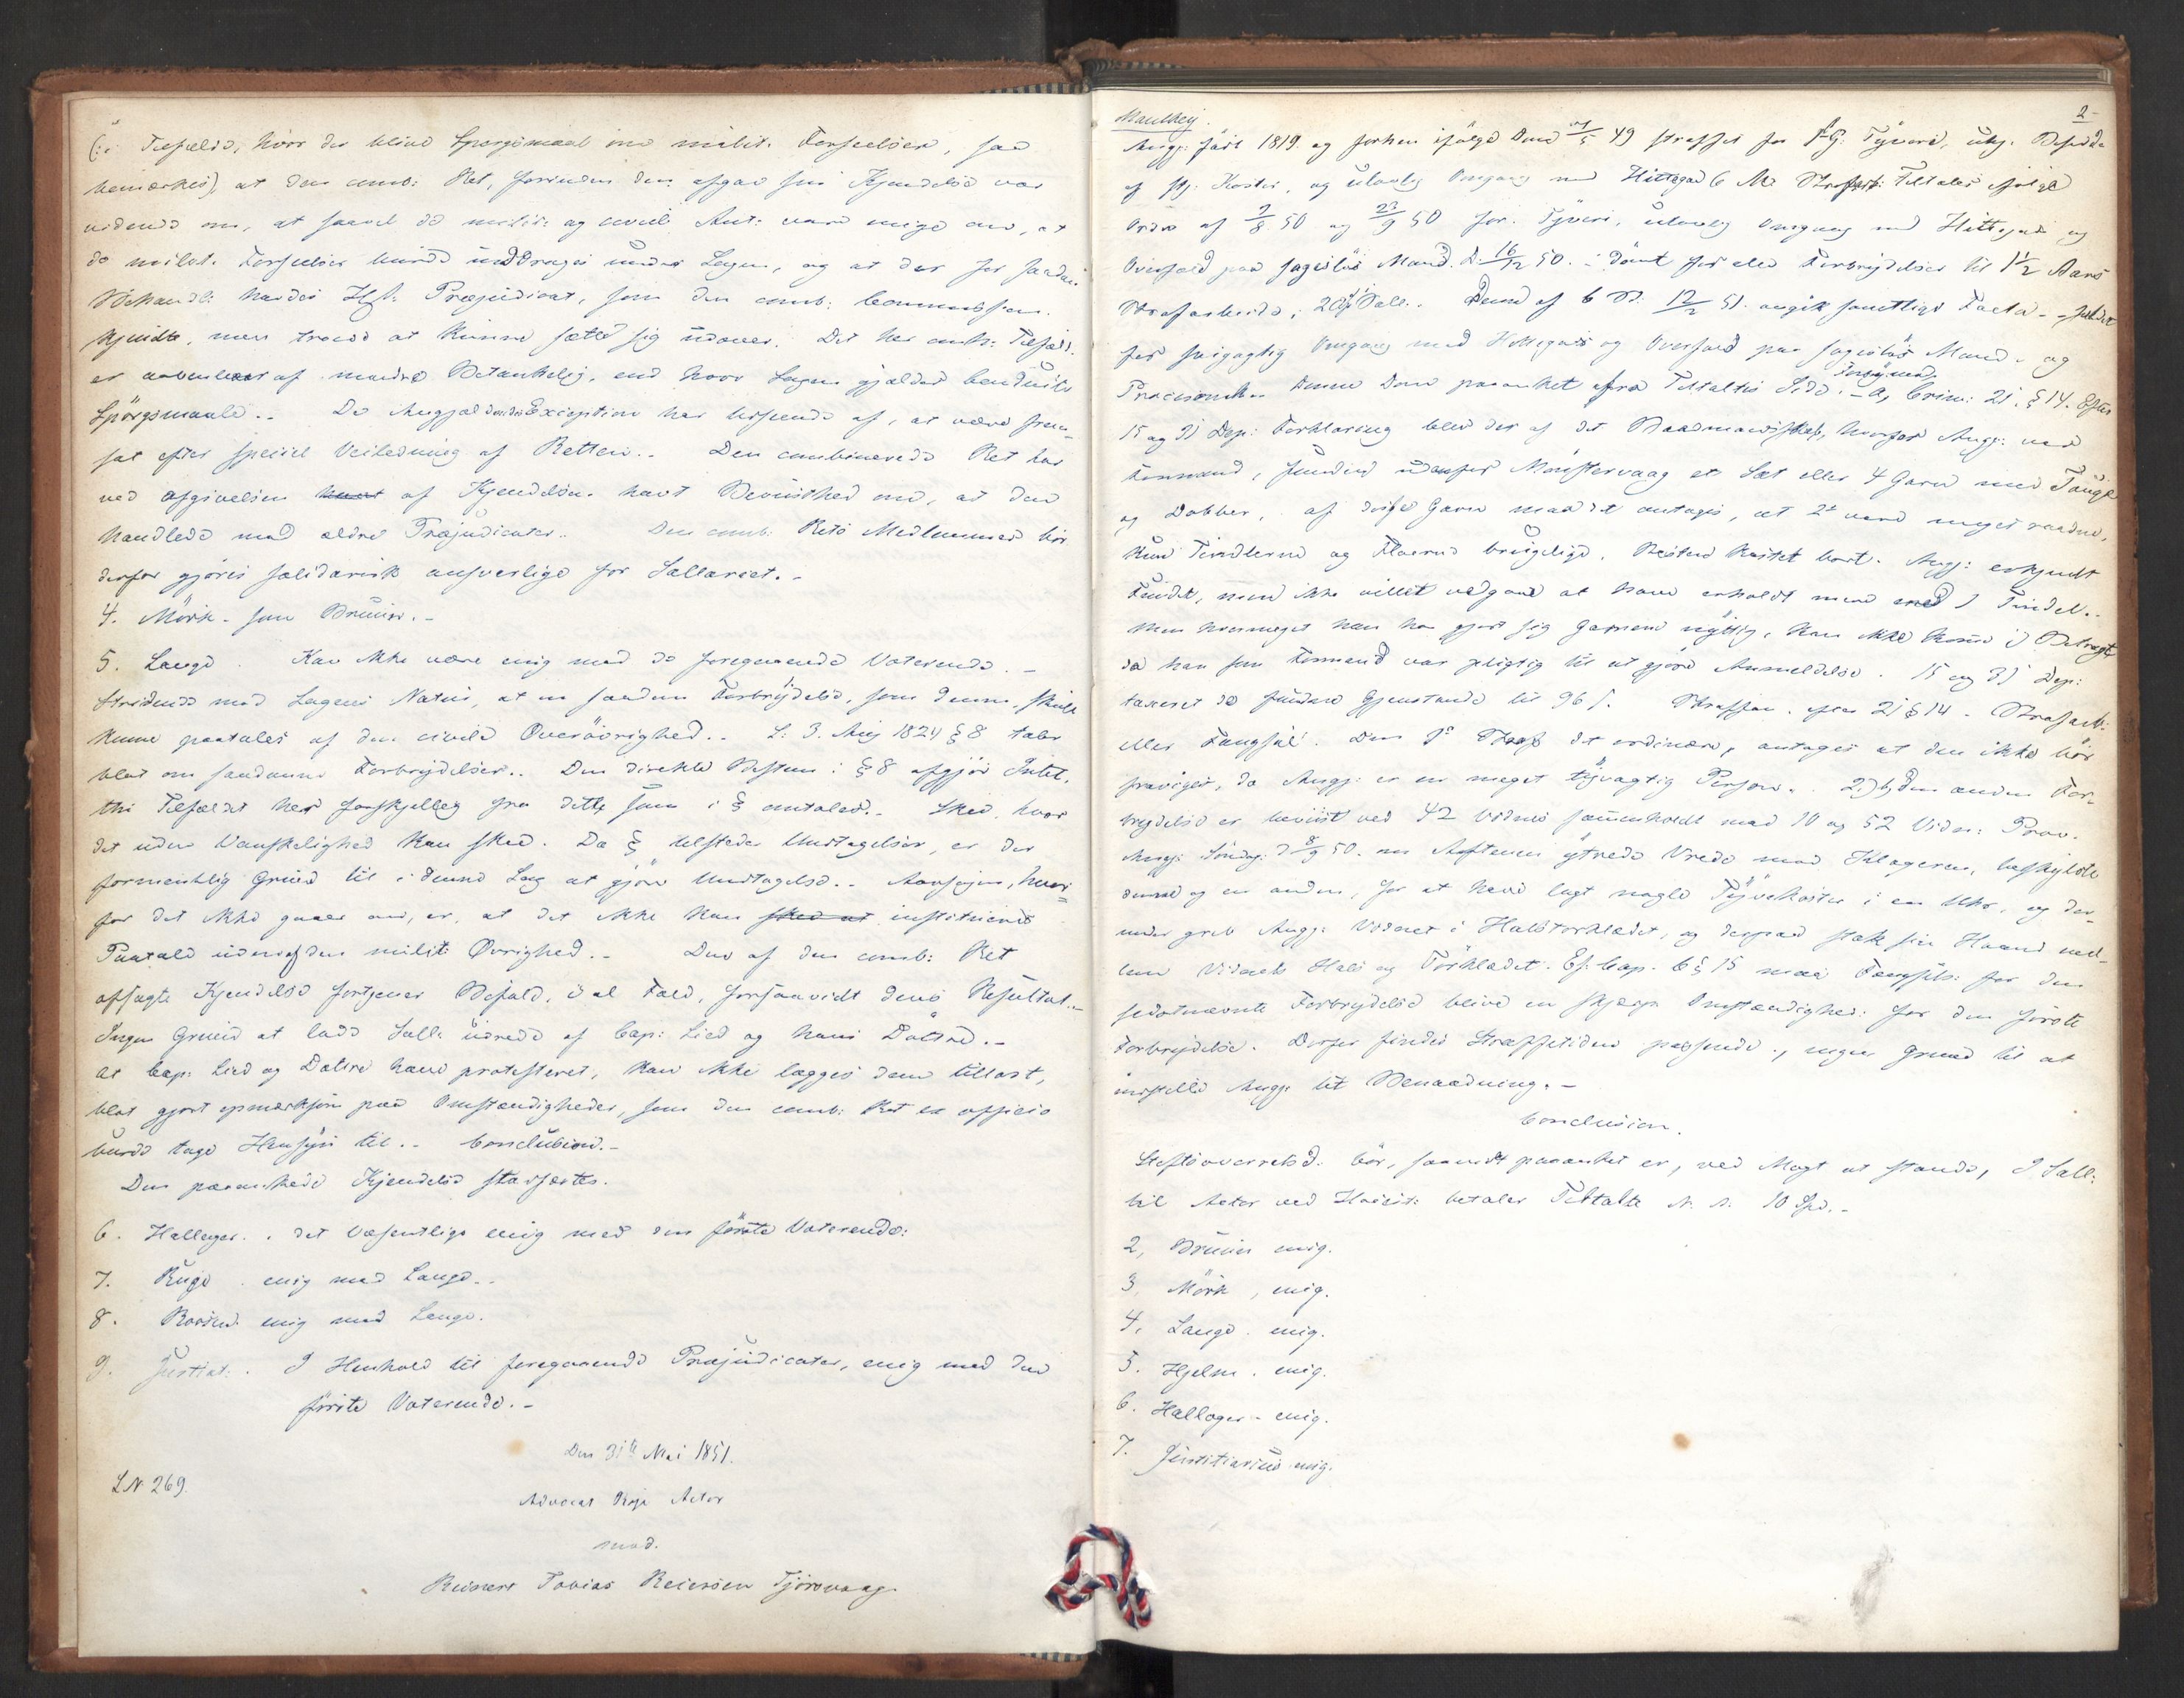 (: Tilfælde, hvor der blive Spørgsmaal om milit. Forseelser, saa
bemærkes), at den comb: Ret, forinden den afgav sin Kjendelse var
vidende om, at saavel de milit: og civile Aut: vare enige om, at
de milit. Forseelser burde inddrages under Sagen, og at der for saadan
Behandl: havdes Hst. Præjudicat, som den comb: Commission
kjendte, men troede at kunne sætte sig udover. Det her omh: Tilfæld.
er aabenbar af mindre Betænkelig. end hvor Sagen gjælder bendiske
Spörgsmaale.. De Angjældendes Exception har Udseende af, at være frem-
sat efter speciel Veiledning af Retten.. Den combinerede Ret har
ved afgivelsen af Kjendelsen havt Bevidsthed om, at den
handlede mod ældre Præjudicater.. Den comb: Rets Medlemmer bör
derfor gjöres solidarisk ansvarlige for Sallariet.-
4. Mörk - som Bruun.-
5. Lange. Kan ikke være enig med de foregaaende Voterende.-
Stridende mod Sagens Natur, at en saadan Forbrydelse, som denne, skulde
kunne paatales af den civile Overövrighed.. L: 3. Aug 1824 § 8 taler
blot om saadanne Forbrydelser.. Den direkte Bestem: § 8 afgjör Intet,
thi Tilfældet her forskjellig fra dette som i § omtales.. Skee, hvor
det uden Vanskelighed kan skee. Da § tilsteder Undtagelser, er der
formentlig Grund til i denne Sag at gjöre Undtagelse.. Aarsagen, hvor-
for det ikke gaaer an, er, at det ikke kan sked at institueres
Paatale uden af den milit: Øvrighed.- Den af den comb: Ret
afsagte Kjendelse fortjener Bifald, i al Fald, forsaavidt dens Resultat.-
Ingen Grund at lade Sall: udrede af Cap: Lied og hans Döttre.-
At Cap: Lied og Döttre have protesteret, kan ikke lægges dem tillast,
blot gjort opmærksom paa Omstændigheder, som den comb: Ret ex officio
burde tage Hensyn til.. Conclusion.-
Den paaankede Kjendelse stadfæstes.
6. Hallager. i det Væsentlige enig med den förste Voterende:
7. Ruge. enig med Lange..
8. enig med Lange.
9. Justit:. I Henhold til foregaaende Præjudicater, enig med den
förste Voterende.-
Den 31te Mai 1851.
L N 269.
Advocat Actor
mod.
Reinert Tobias Reiersen Tjörsvaag.
Manthey.
2-
Angj: födt 1819 og forhen ifölge Dom 49 straffet for 1 G: Tyverie,
og ulovlig Omgang med Hittegods 6 Md. Strafarb: Tiltales ifölge
Ordre af 2/8 50 og 23/9 50 for Tyveri, ulovlig Omgang med Hittegods og
Overfald paa sageslös Mand. D. 16/12 50. dömt for disse Forbrydelser til 1 1/2 Aars
Strafarbeide, Sall:. Domd af 12/2 51. angik samtlige Facta -- fældet
for svigagtig Omgang med Hittegods og Overfald paa sageslös Mand - og
Denne Dom paaanket fra Tiltaltes Side. - Crim: 21. § 14. Efter
15 og 31 Dep: Forklaring blev der af det Baadmandskab, hvorfor Angj: var
Formand, funden udenfor Mönstervaag et Sæt eller 4 Garn med Tauge
og Dobber, af disse Garn maa det antages, at 2de vare meget raadne,
kun Tindlerne og Floerne brugelige. Resten kastet bort. Angj: erkjendt
Fundet, men ikke villet vedgaae at have erholdt mere end 1 Tindel..
Men hvormeget han har gjort sig Garnene nyttig, kan ikke komme i Betragtg
da han som Formand var pligtig til at gjöre Anmeldelse. 15 og 31 Dep:
taxeret de fundne Gjenstande til 96 ſ. Straffen. efter 21 § 14 - Strafarb:
eller Fængsel. Den det ordinære, antages at den ikke bör
fraviges, da Angj: er en meget tyvagtig Person. 2) b, Den anden For-
brydelse er beviist ved 42 Vidnes sammenholdt med 10 og 52 Vidn: Prov.
Angj: Söndag. D 8/9 50. om Aftenen ytrede Vrede mod Klageren, beskyldte
denne og en anden, for at have lagt nogle Tyvekoster i en Uhr, og der-
under greb Angj: Vidnet i Halstörklædet, og derpaa stak sin Haand mel-
lem Vidnets Hals og Törklædet. Ef. Cap. 6 § 15 maa Fængsels: for den
sidstnævnte Forbrydelse blive en skjærp: Omstændighed: for den förste
Forbrydelse. Derfor findes Straffetiden passende., ingen Grund til at
indstille Angj: til Benaadning.-
Conclusion.
Stiftsoverretsd. bör, saavidt paaanket er, ved Magt at stande, I Sall:
til Actor ved Höiest: betaler Tiltalte N. N. 10 Spd.-
2, Bruun enig.
3, Mörk, enig.
4, Lange. enig.
5. Hjelm. enig.
6. Hallager - enig.
7. Justitiarius enig.